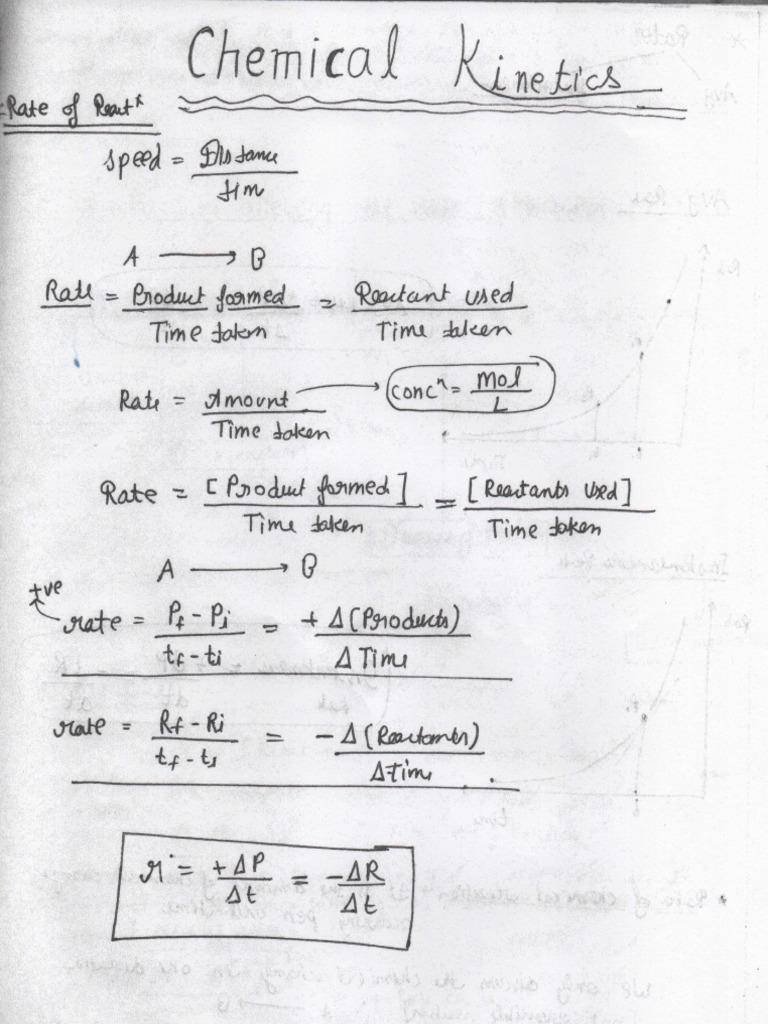 Chemical Kinetics
Rate of React^n
Speed = Distance / tim
A → B
Rate = Product formed / Time taken = Reactant used / Time taken
Rate = Amount / Time taken → concⁿ = mol / L
Rate = [Product formed] / Time taken = [Reactants used] / Time taken
A → B
+ve
rate = Pf - Pi / tf - ti = + Δ(Products) / Δ Time
rate = Rf - Ri / tf - ti = - Δ(Reactants) / ΔTime
r = +ΔP / Δt = -ΔR / Δt